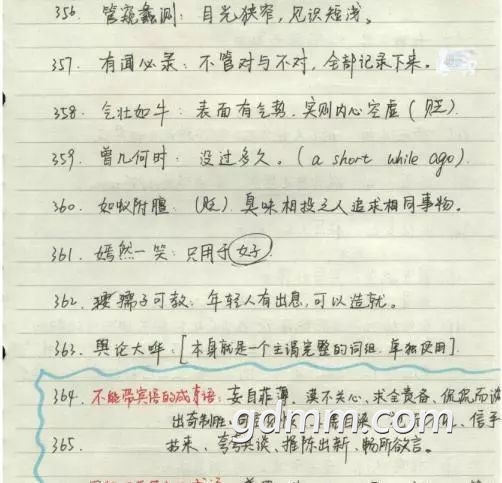 356. 管窥蠡测：目光狭窄，见识短浅。
357. 有闻必录：不管对与不对，全部记录下来。
358. 气壮如牛：表面有气势，实则内心空虚（贬）
359. 曾几何时：没过多久。（a short while ago）
360. 如蚁附膻：（贬）臭味相投之人追求相同事物。
361. 嫣然一笑：只用于女子
362. 孺子可教：年轻人有出息，可以造就。
363. 舆论大哗：[本身就是一个主谓完整的词组，单独使用]
364. 不能带宾语的成语：妄自菲薄、漠不关心、求全责备、侃侃而谈
出奇制胜、信手
gdmm.com
365. 拈来、夸夸其谈、推陈出新、畅所欲言。